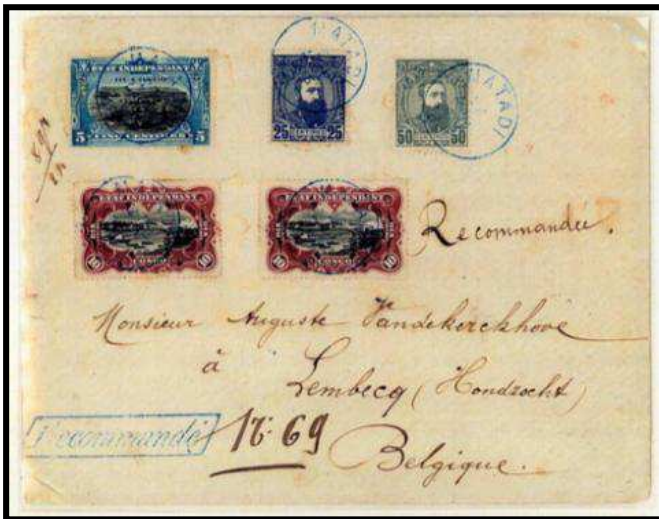 MATADI
MATADI
ETAT INDEPENDANT
DU CONGO
5 CINQ CENTIMES 5
25 CENTIMES 25
50 CENTIMES 50
ETAT INDEPENDANT
10 CONGO 10
ETAT INDEPENDANT
10 CONGO 10
Recommandée.
Monsieur Auguste Vandekerckhove
à
Lembecq (Hondzocht)
Recommandé
69
Belgique.